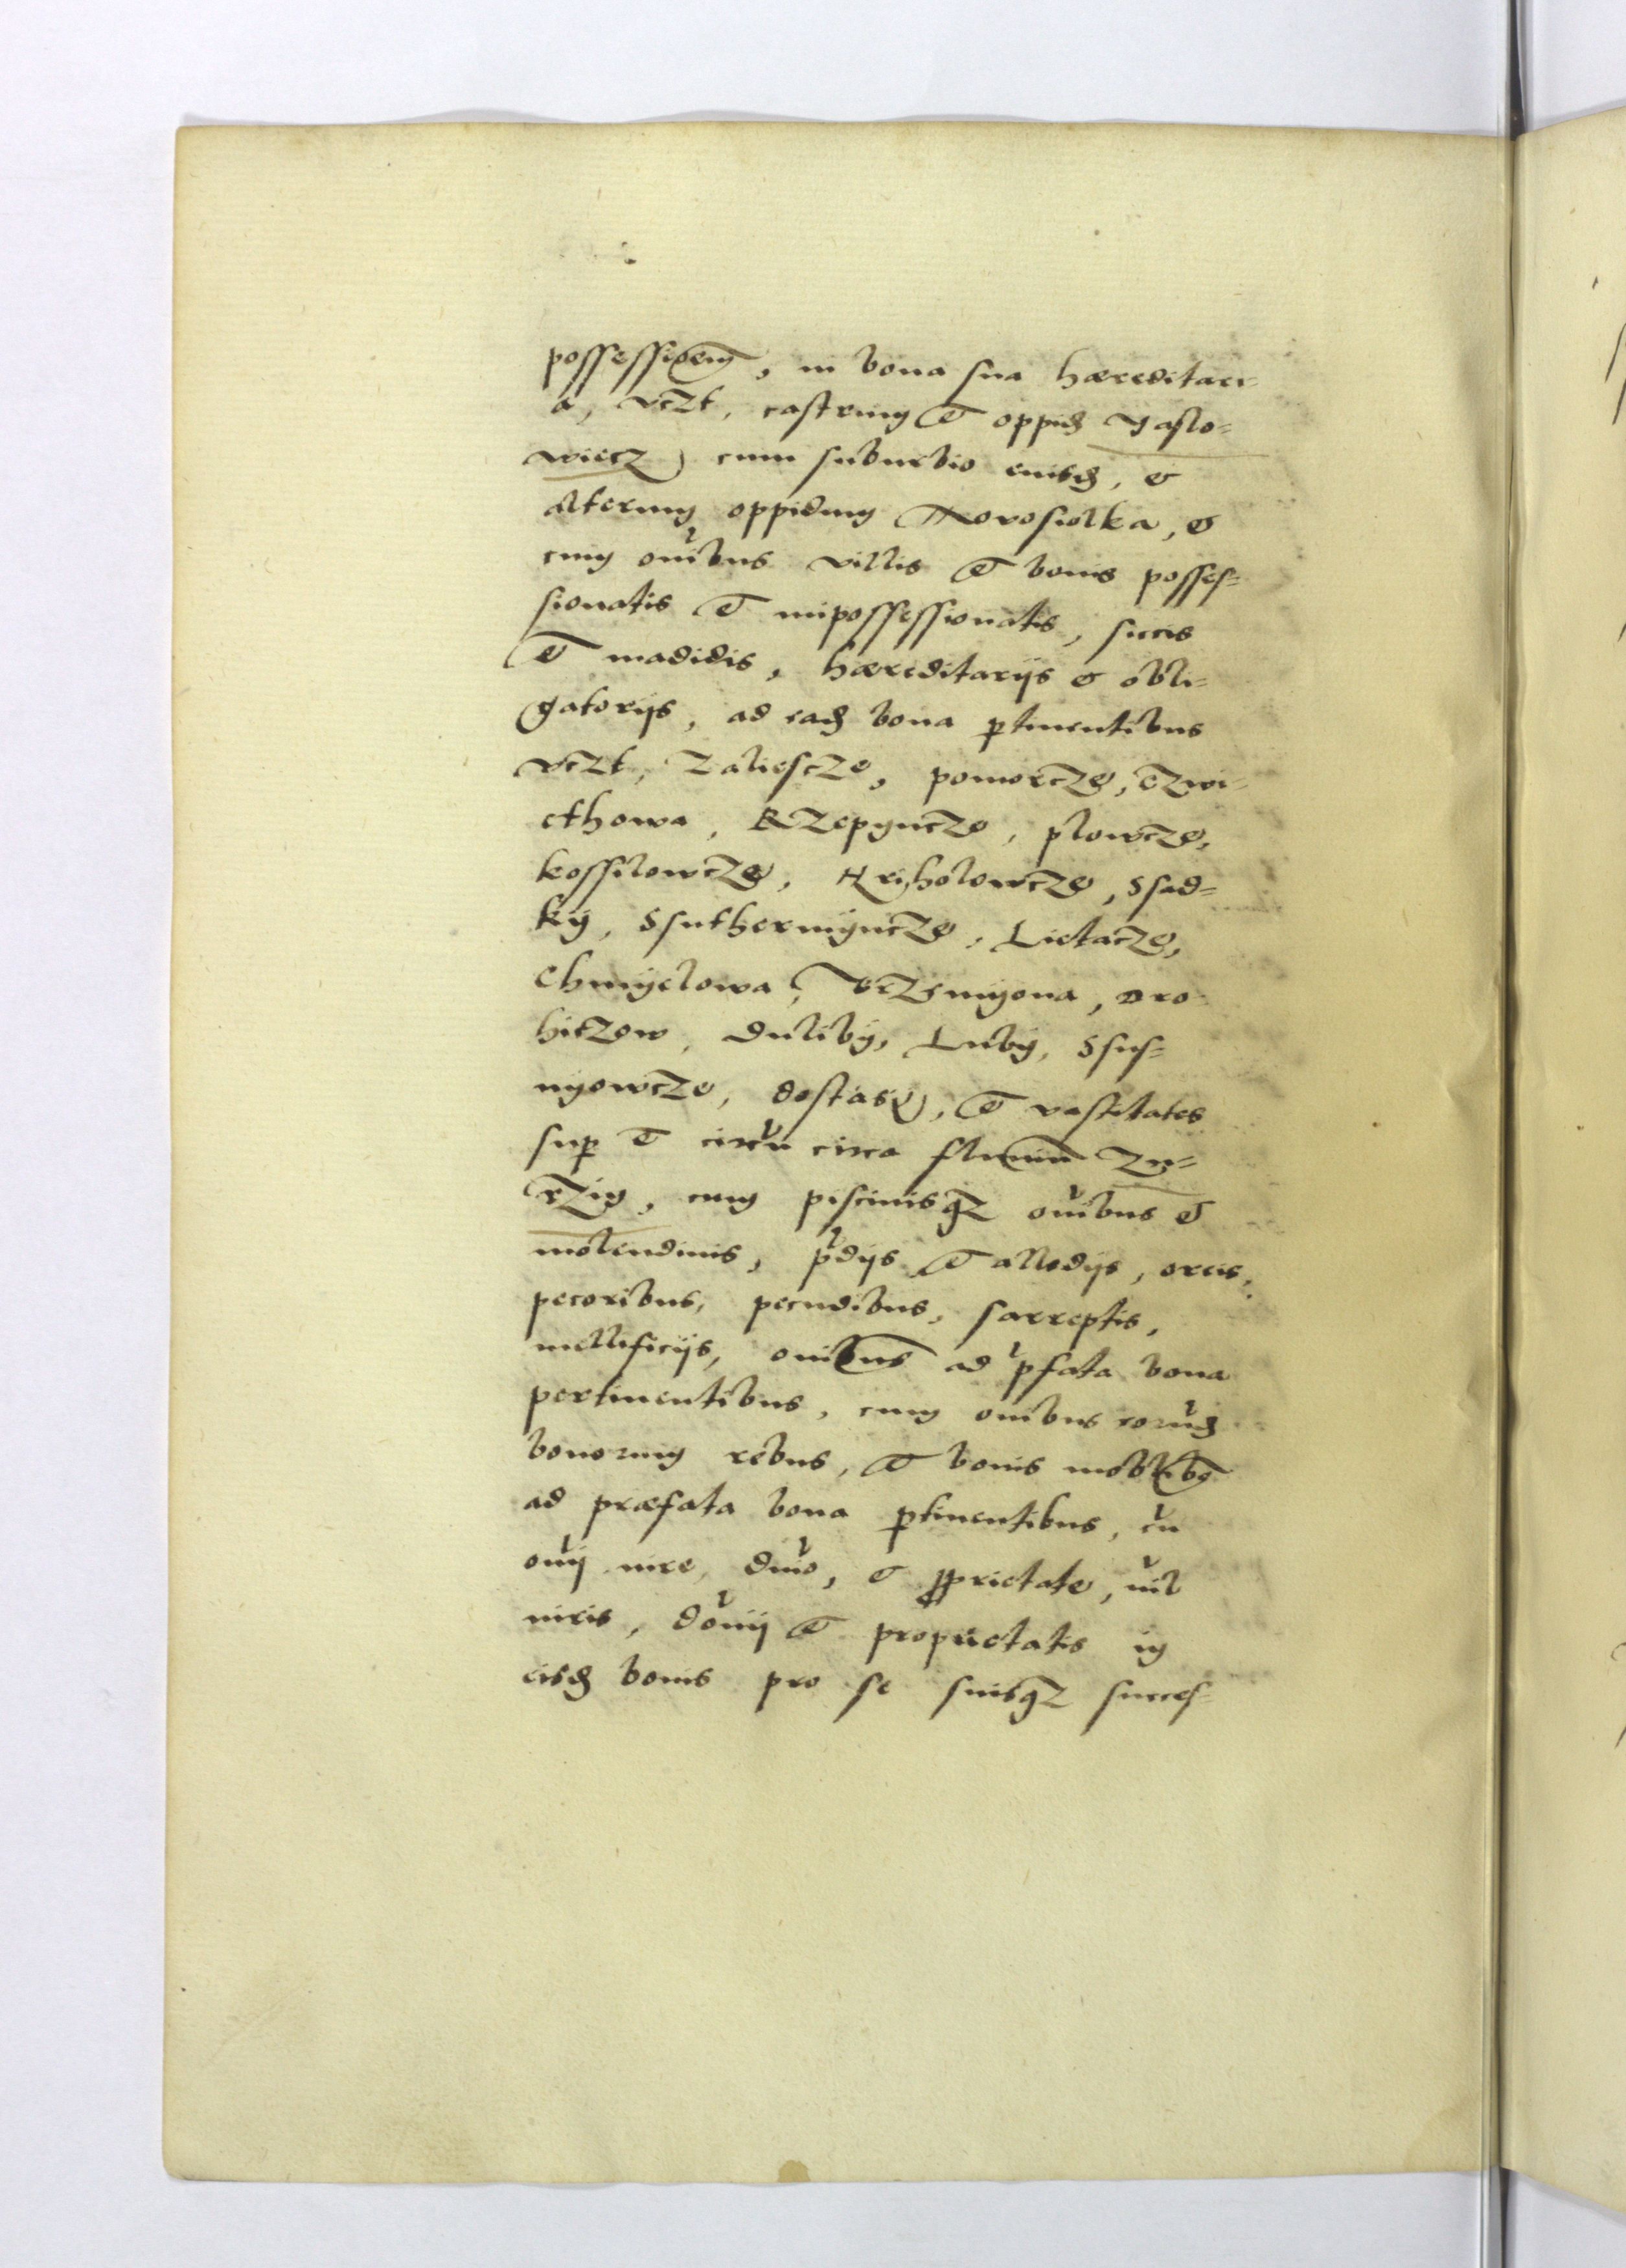 possessionem, in bona sua haereditari-
a, vczt, castrum et oppid Yaslo-
wiecz, cum suburbio eiusd, et
alterum oppidum Novosiolka, et
cum omibus villis et bonis posses-
sionatis et impossessionatis, siccis
et madidis, haereditarijs et obli-
gatorijs, ad ead bona ptinentibus
vczt, Zaliescze, pomorcze, Czwi-
thowa, Rzepyncze, plowcze,
kossilowcze, Hriholowcze, Ssad-
ky, Ssuthermyncze, Lietacze,
Chmyelowa, Vczmyona, Dro
hiczow, Duliby, Luby, Ssus-
nyowcze, et vastitates
sup et circu circa flumen Zu-
rzig, cum piscinisqz omibus et
molendinis, pdijs et allodijs, orcis,
pecoribus, pecudibus, sarreptis,
mellificijs, omibus ad pfata bona
pertinentibus, cum omibus eorud
bonorum rebus, et bonis moblibq
ad praefata bona ptinentibus, cu
omij iure, dmio, et pprietate, nil
iuris, domij et proprietatis in
eisd bonis pro se suisqz succes-